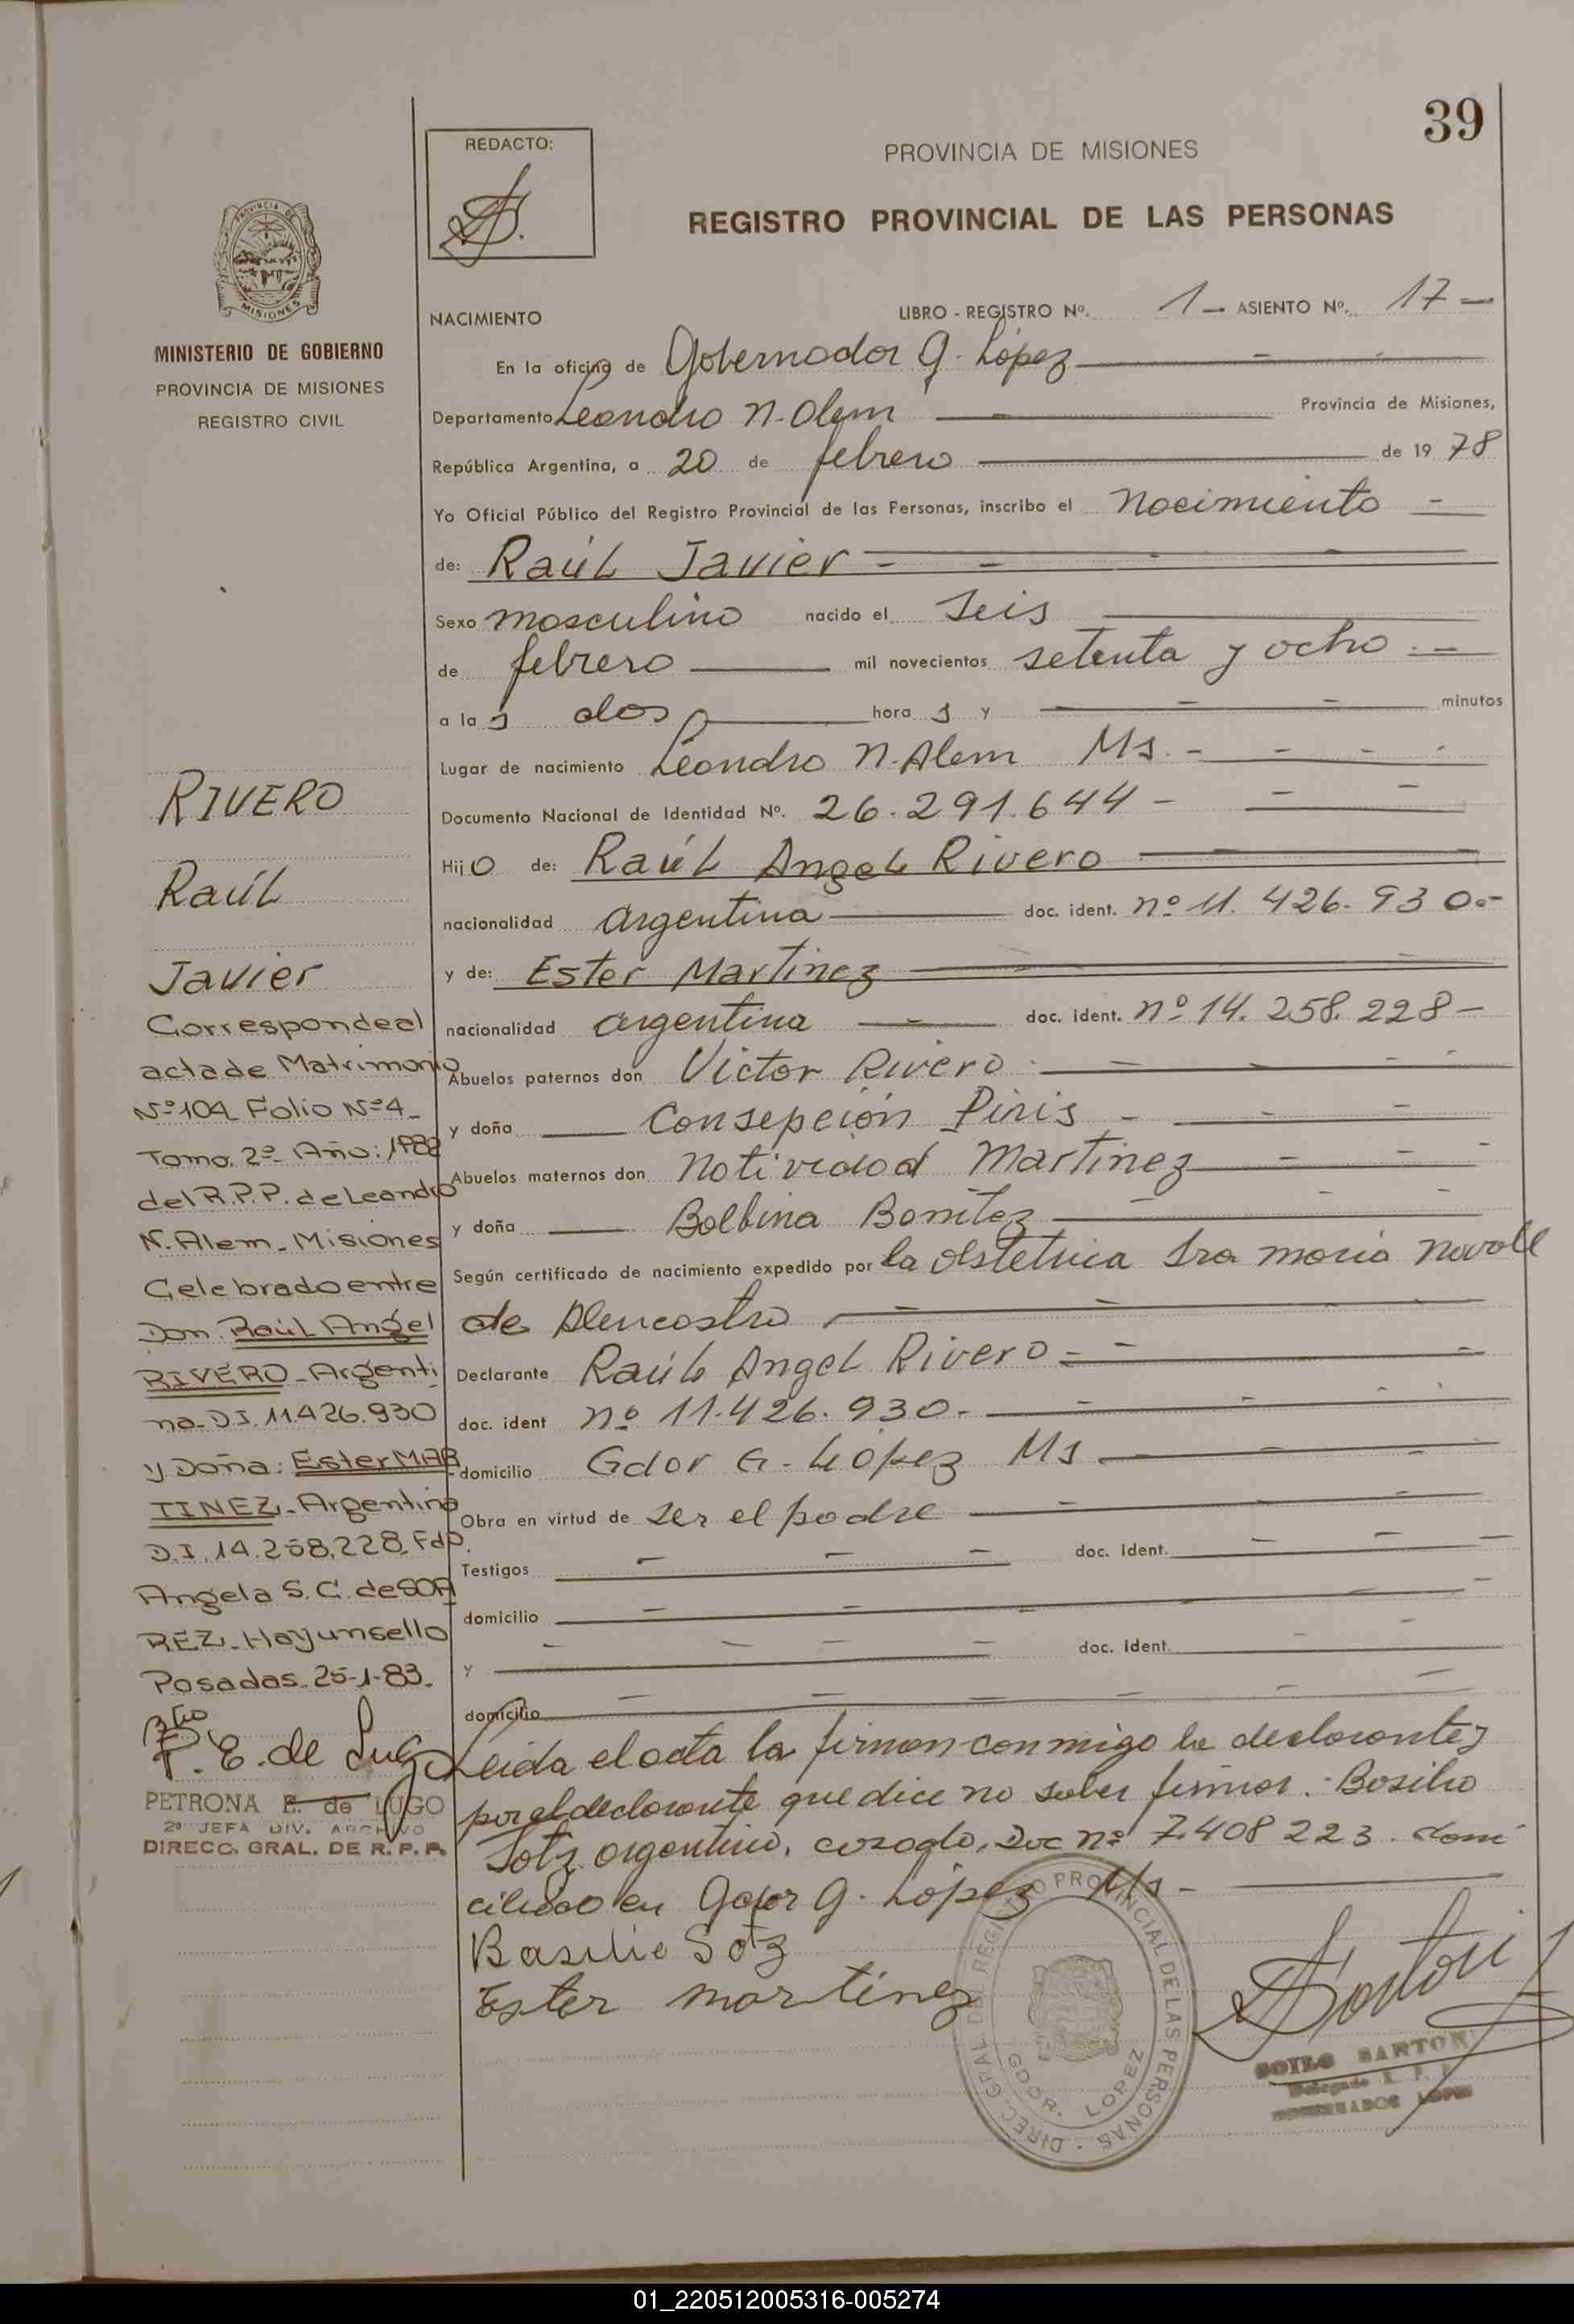 39
REDACTO:
PROVINCIA DE MISIONES
REGISTRO PROVINCIAL DE LAS PERSONAS
PROVINCIA DE
MISIONES
MINISTERIO DE GOBIERNO
PROVINCIA DE MISIONES
REGISTRO CIVIL
NACIMIENTO
LIBRO - REGISTRO Nº. 1 - ASIENTO Nº. 17 -
En la oficina de Gobernador G. López
Departamento Leandro N. Alem Provincia de Misiones,
República Argentina, a 20 de febrero de 19 78
Yo Oficial Público del Registro Provincial de las Personas, inscribo el Nacimiento
de: Raúl Javier
Sexo masculino nacido el seis
de febrero mil novecientos setenta y ocho
a la s dos hora s y minutos
Lugar de nacimiento Leandro N. Alem Ms.
Documento Nacional de Identidad Nº. 26.291.644
Hijo de: Raúl Angel Rivero
nacionalidad argentina doc. ident. nº 11.426.930
y de: Ester Martinez
nacionalidad argentina doc. ident. nº 14.258.228
Abuelos paternos don Victor Rivero
y doña Consepción Piris
Abuelos maternos don Natividad Martinez
y doña Balbina Benitez
Según certificado de nacimiento expedido por la Obstetrica Sra maria
de Alencastro
Declarante Raúl Angel Rivero
doc. ident nº 11.426.930
domicilio Gdor G. López Ms
Obra en virtud de ser el padre
Testigos doc. ident.
domicilio
y doc. ident.
domicilio
Leida el acta la firman conmigo la declarante y
por el declarante que dice no saber firmar. Basilio
Sotz argentino, casado, Doc nº 7.408 223. domi
ciliado en Gdor G. López Ms
Basilio Sotz
Ester martinez
RIVERO
Raúl
Javier
Corresponde al
acta de Matrimonio
Nº 104 Folio Nº 4
Tomo. 2º Año: 1982
del R.P.P. de Leandro
N. Alem - Misiones
Celebrado entre
Don Raúl Angel
RIVERO - Argenti
na - D.I. 11.426.930
y Doña: Ester MAR
TINEZ - Argentina
D.I. 14.258.228 Fdo.
Angela S. C. de SOA
REZ - Hay un sello
Posadas - 25-1-83.
P. E. de Lugo
PETRONA E. de LUGO
2º JEFA DIV. ARCHIVO
DIRECC. GRAL. DE R. P. P.
DIREC. GRAL. DEL REGISTRO PROVINCIAL DE LAS PERSONAS
GDOR. LOPEZ
01_220512005316-005274